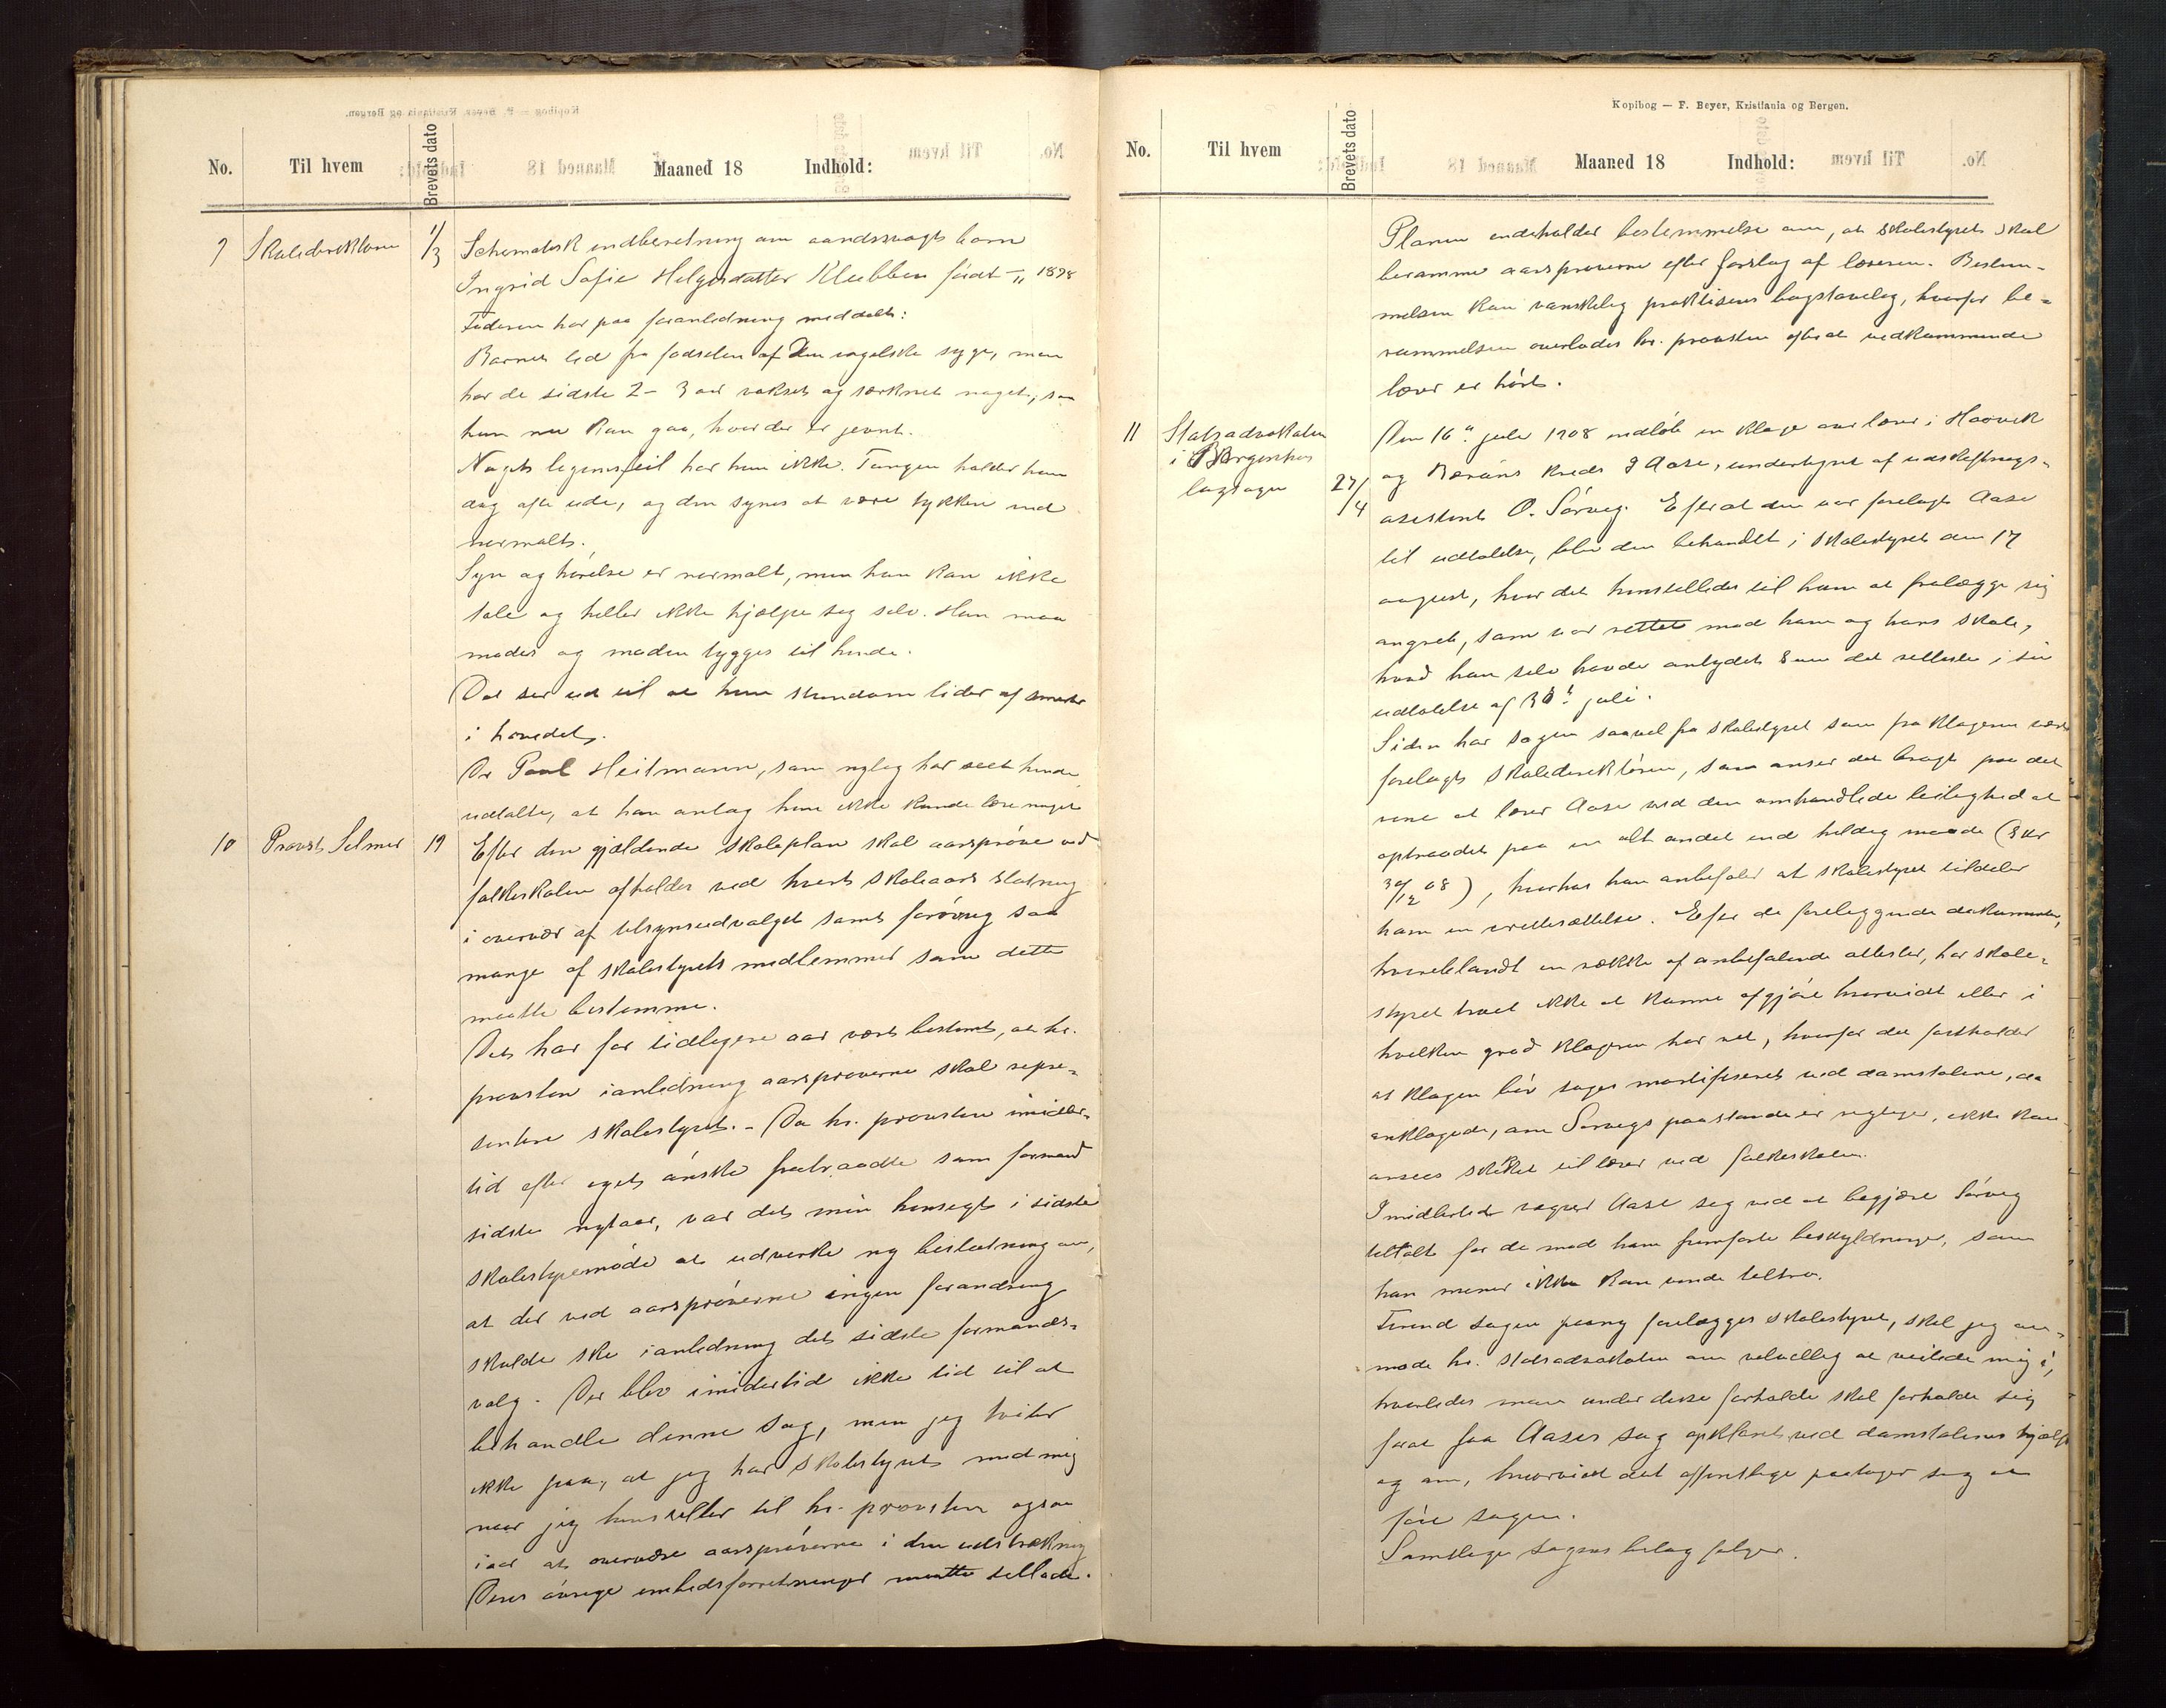 Kopibog — F. Beyer, Kristiania og Bergen.
No. Til hvem Brevets dato Maaned 18 Indhold:
9 Skoledirektøren 1/3 Schematisk indberetning om aandssvagt barn
Ingrid Sofie Helgesdatter Klubben født 1898
Faderen har paa foranledning meddelt:
Barnet led fra fødselen af den engelske syge, men
har de sidste 2-3 aar vokset og styrknet noget, saa
hun nu kan gaa, hvor der er jevnt.
Noget legemsfeil har hun ikke. Tungen holder hun
dog ofte ude, og den synes at være tykkere end
normalt.
Syn og hørelse er normalt, men hun kan ikke
tale og heller ikke hjælpe sig selv. Hun maa
mades og maden tygges til hende.
Det ser ud til at hun stundom lider af smerter
i hovedet.
Dr Paul Heitmann, som nylig har seet hende
udtalte, at han antog hun ikke kunde lære noget
10 Provst Selmer 19 Efter den gjældende skoleplan skal aarsprøve ved
folkeskolen afholdes ved hvert skoleaars slutning
i overvær af tilsynsudvalget samt forøvrig saa
mange af skolestyrets medlemmer som dette
maatte bestemme.
Det har for tidligere aar vært bestemt, at hr.
provsten i anledning aarsprøverne skal repre-
sentere skolestyret. - Da hr. provsten imidler-
tid efter eget ønske fratraadte som formand
sidste nytaar, var det min hensigt i sidste
skolestyremøde at udvirke ny beslutning om,
at der ved aarsprøverne ingen forandring
skulde ske i anledning det sidste formands-
valg. Der blev imidertid ikke tid til at
behandle denne sag, men jeg tviler
ikke paa, at jeg har skolestyret med mig
naar jeg henstiller til hr. provsten ogsaa
iaar at overvære aarsprøverne i den udstrækning
Deres øvrige embedsforretninger maatte tillade.
Kopibog — F. Beyer, Kristiania og Bergen.
No. Til hvem Brevets dato Maaned 18 Indhold:
Planen indeholder bestemmelse om, at skolestyret skal
beramme aarsprøverne efter forslag af læreren. Bestem-
melsen kan vanskelig praktiseres bogstavelig, hvorfor be-
rammelsen overlades hr. provsten efterat vedkommende
lærer er hørt.
11 Statsadvokaten i Bergenhus lagsogn 27/4 Den 16de juli 1908 indløb en klage over lærer i
og kreds Aase, undertegnet af udskiftnings-
assistent O. Sørvig. Efterat den var forelagt Aase
til udtalelse, blev den behandlet i skolestyret den 17
august, hvor det henstilledes til ham at fralægge sig
angreb, som var rettet mod ham og hans skole,
hvad han selv havde antydet som det retteste i sin
udtalelse af 30te juli.
Siden har sagen saavel fra skolestyret som fra klageren vært
forelagt skoledirektøren, som anser det bragt paa det
rene at lærer Aase ved den omhandlede leilighed at
optraadt paa en alt andet end heldig maade (skr
30/12 08), hvorhos han anbefaler at skolestyret tildeler
ham en irettesættelse. Efter de foreliggende dokumenter,
hvoriblandt en række af anbefalende attester, har skole-
styret troet ikke at kunne afgjøre hvorvidt eller i
hvilken grad klageren har ret, hvorfor det fastholder
at klagen bør søges mortificeret ved domstolene, da
anklagede, om Sørvigs paastande er rigtige, ikke kan
ansees skikket til lærer ved folkeskolen.
Imidlertid vegrer Aase sig ved at begjære Sørvig
tiltalt for de mod ham fremførte beskyldninger, som
han mener ikke kan vinde tiltro.
Førend sagen paany forelægges skolestyret, skal jeg an-
mode hr. statsadvokaten om velvillig at veilede mig i,
hvorledes man under disse forholde skal forholde sig
forat faa Aases sag opklaret ved domstolenes hjælp
og om, hvorvidt det offentlige paatager sig at
føre sagen.
Samtlige sagens bilag følger.